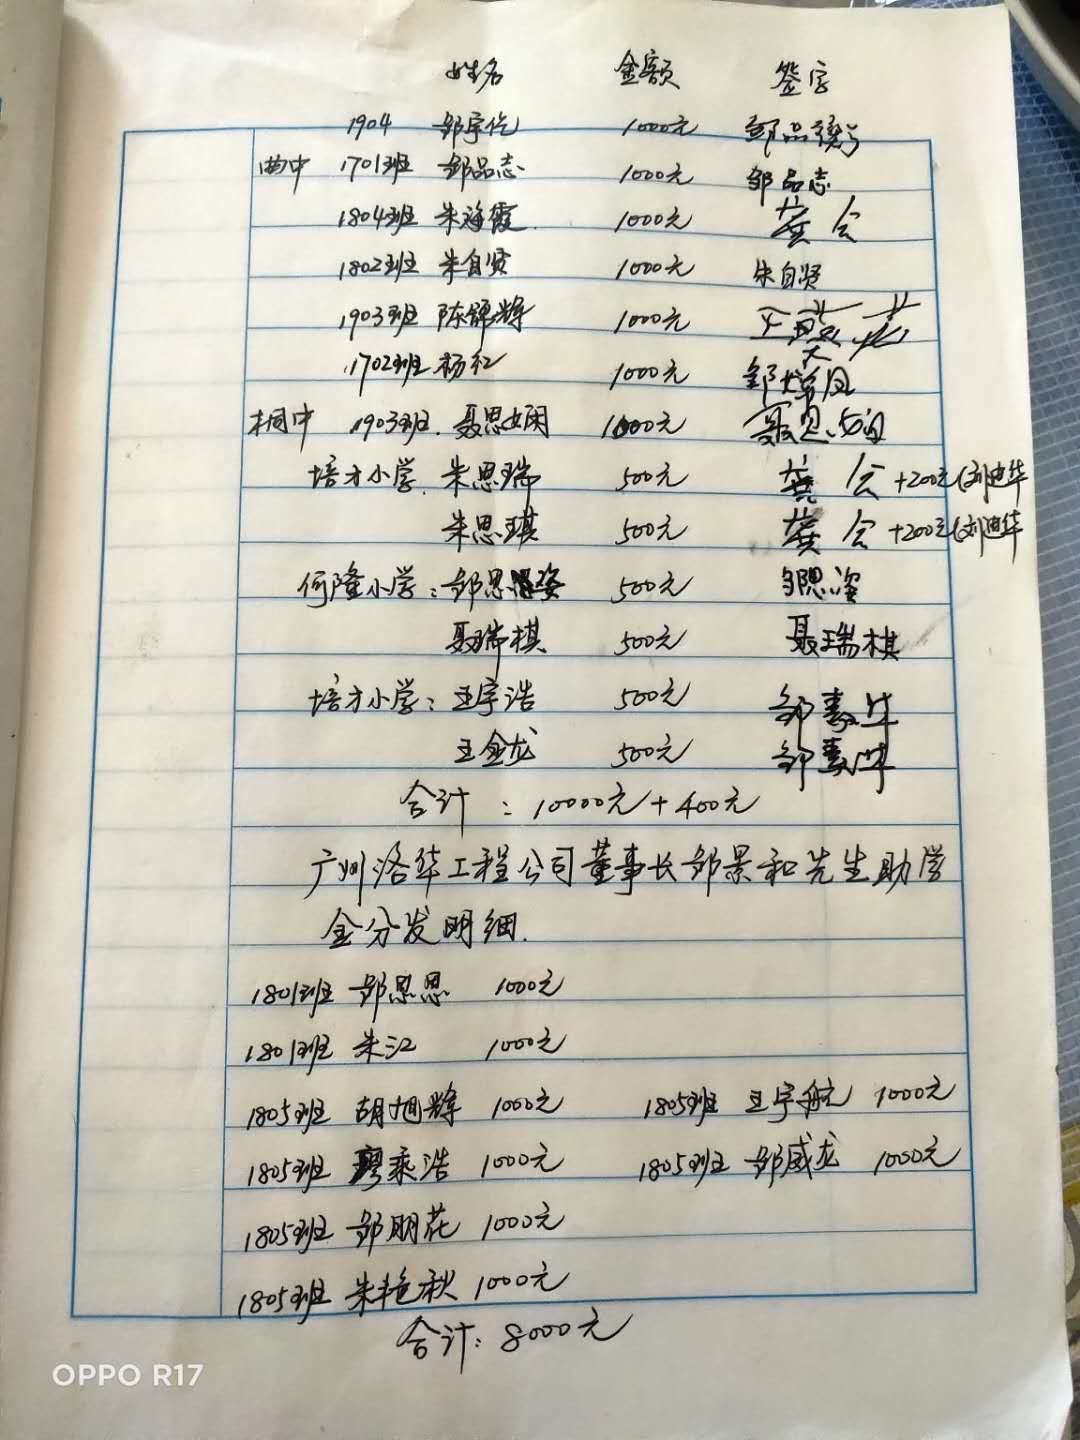 姓名 金额 签字
1904 邹宇 1000元 邹品
曲中 1701班 邹品志 1000元 邹品志
1804班 朱海霞 1000元 龚会
1802班 朱自贤 1000元 朱自贤
1903班 陈锦辉 1000元
1702班 杨红 1000元 邹
桐中 1903班 聂思娴 1000元 聂思娴
培才小学 朱思瑞 500元 龚会 +200元(刘迪华
朱思琪 500元 龚会 +200元(刘迪华
何隆小学: 邹思姿 500元 邹思姿
聂瑞棋 500元 聂瑞棋
培才小学: 王宇浩 500元 邹素华
王金龙 500元 邹素华
合计 : 10000元+400元
广州洛华工程公司董事长邹景和先生助学
金分发明细.
1801班 邹思思 1000元
1801班 朱江 1000元
1805班 胡旭辉 1000元 1805班 王宇航 1000元
1805班 廖乘浩 1000元 1805班 邹威龙 1000元
1805班 邹朋花 1000元
1805班 朱艳秋 1000元
合计: 8000元
OPPO R17